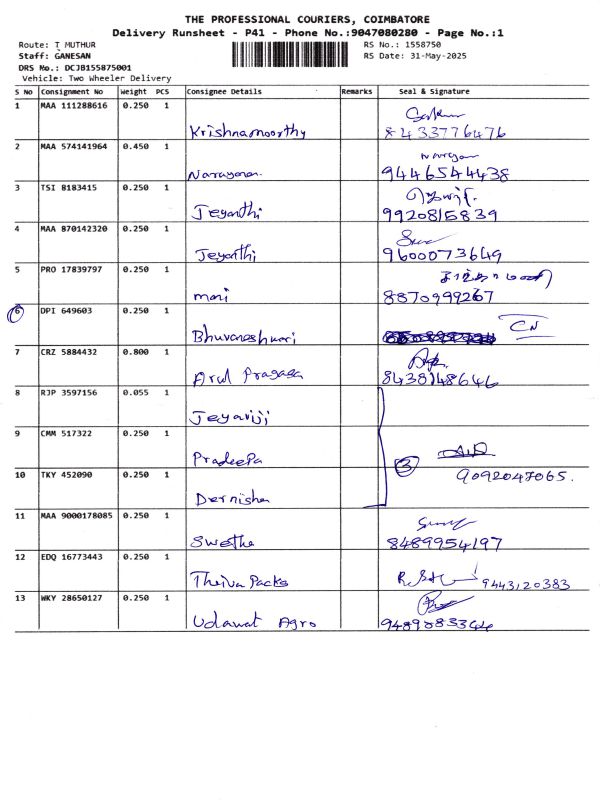 THE PROFESSIONAL COURIERS, COIMBATORE
Delivery Runsheet - P41 - Phone No.:9047080280 - Page No.:1
Route: T MUTHUR RS No.: 1558750
Staff: GANESAN RS Date: 31-May-2025
DRS No.: DCJB155875001
Vehicle: Two Wheeler Delivery
S No Consignment No Weight PCS Consignee Details Remarks Seal & Signature
1 MAA 111288616 0.250 1
Krishnamoorthy 8433776476
2 MAA 574141964 0.450 1 Narayan
Narayanan 9446544438
3 TSI 8183415 0.250 1
Jeyanthi 9920815839
4 MAA 870142320 0.250 1
Jeyanthi 9600073649
5 PRO 17839797 0.250 1
mari 8870999267
6 DPI 649603 0.250 1 CN
Bhuvaneshwari
7 CRZ 5884432 0.800 1
Arul Pragasa 8438148646
8 RJP 3597156 0.055 1
Jeyaviji
9 CMM 517322 0.250 1
Pradeepa 3
10 TKY 452090 0.250 1 9092047065.
Dernisha
11 MAA 9000178085 0.250 1
Swetha 8489954197
12 EDQ 16773443 0.250 1
Theiva Packs 9443120383
13 WKY 28650127 0.250 1
Udawat Agro 9489883344